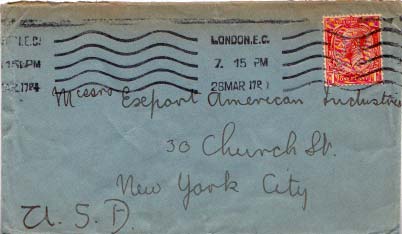 LONDON.E.C.
7. 15 PM
28MAR 17
Messrs Export American Industries
30 Church St.
New York City
U. S. A.